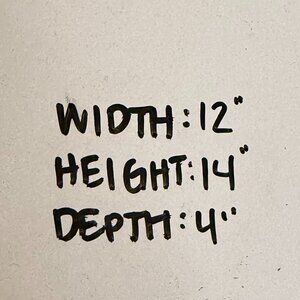 WIDTH: 12"
HEIGHT: 14"
DEPTH: 4"